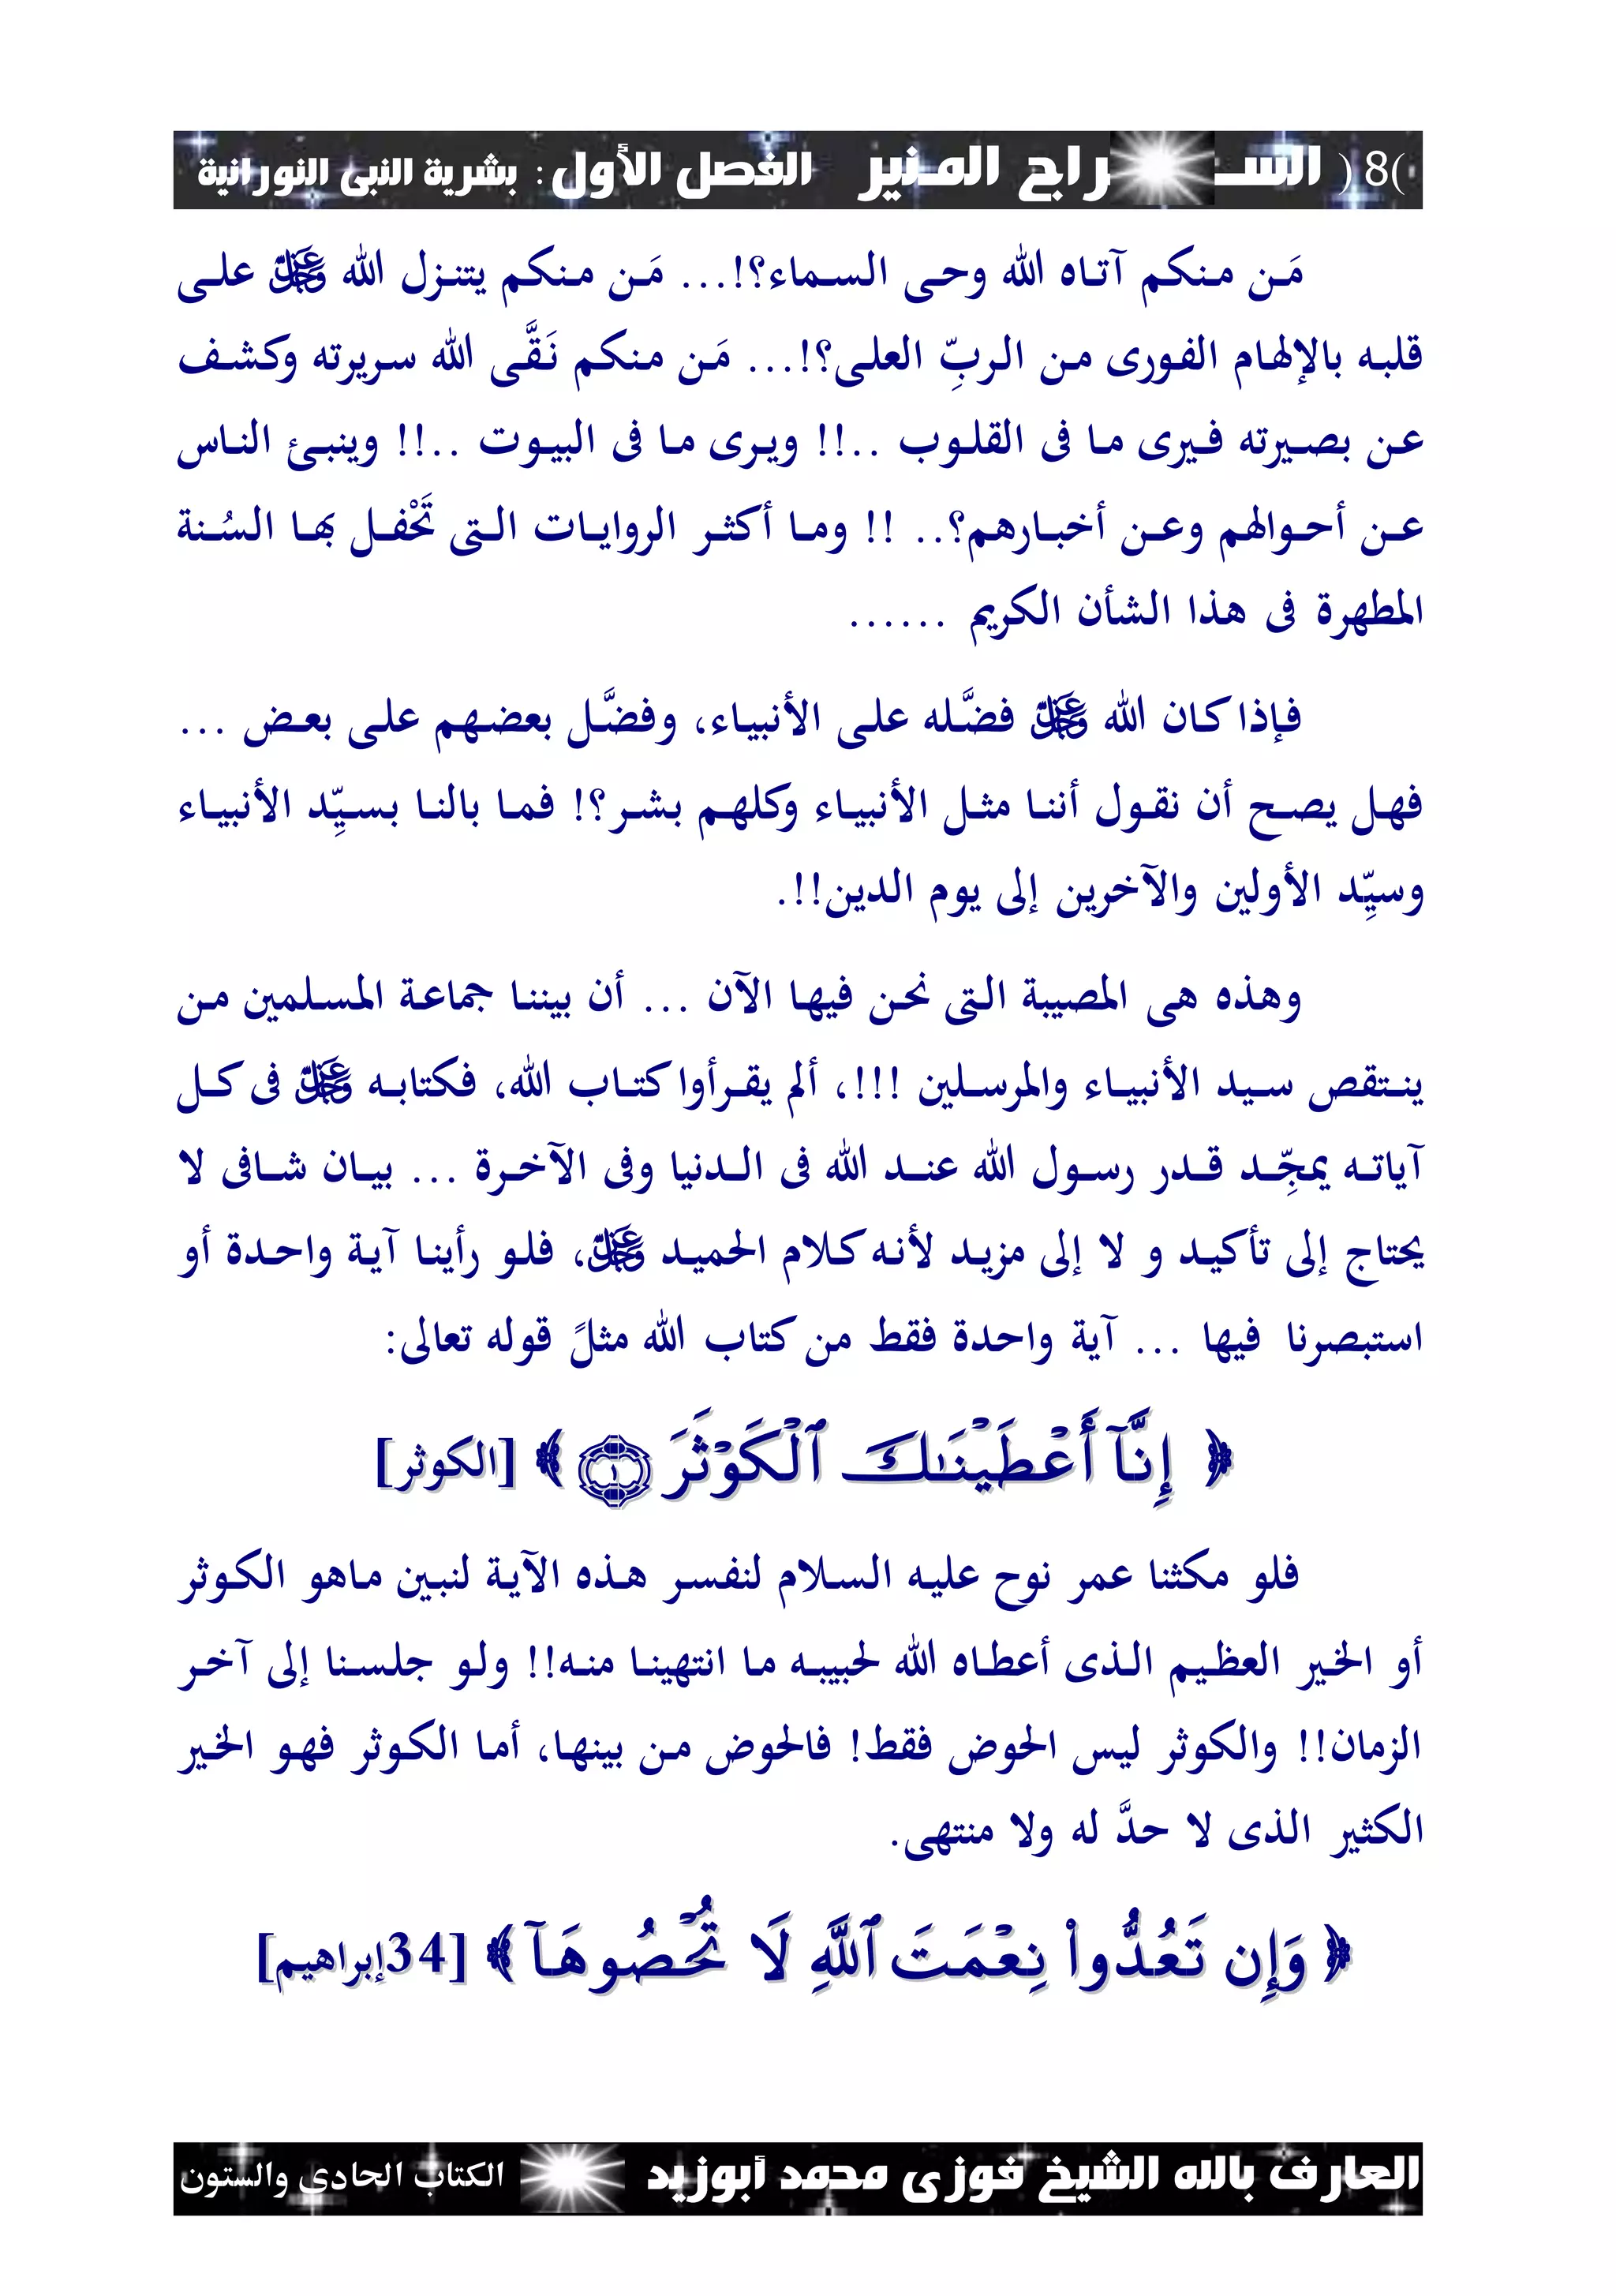 (8) الســراج المـنير الفصل الأول: بشرية النبى النورانية
مَن منكم آتاه الله وحى السماء؟!... مَن منكم يتنزل الله ﷻ على
قلبه بالإلهام الفورى من الربِّ العلى؟!... مَن منكم نَقَّى الله سريرته وكشف
عن بصيرته فيرى ما فى القلوب ..!! ويرى ما فى البيوت ..!! وينبئ الناس
عن أحوالهم وعن أخبارهم؟.. !! وما أكثر الروايات التى تَحْفل بها السُنة
المطهرة فى هذا الشأن الكريم ......
فإذا كان الله ﷻ فضَّله على الأنبياء، وفضَّل بعضهم على بعض ...
فهل يصح أن نقول أننا مثل الأنبياء وكلهم بشر؟! فما بالنا بسيِّد الأنبياء
وسيِّد الأولين والآخرين إلى يوم الدين!!.
وهذه هى المصيبة التى نحن فيها الآن ... أن بيننا جماعة المسلمين من
ينتقص سيد الأنبياء والمرسلين !!!، ألم يقرأوا كتاب الله، فكتابه ﷻ فى كل
آياته يمجِّد قدر رسول الله عند الله فى الدنيا وفى الآخرة ... بيان شافى لا
يحتاج إلى تأكيد و لا إلى مزيد لأنه كلام الحميد ﷻ، فلو رأينا آية واحدة أو
استبصرنا فيها ... آية واحدة فقط من كتاب الله مثلً قوله تعالى:
﴿ إِنَّآ أَعْطَيْنَـٰكَ ٱلْكَوْثَرَ ۝١ ﴾ [الكوثر]
فلو مكثنا عمر نوح عليه السلام لنفسر هذه الآية لنبين ماهو الكوثر
أو الخير العظيم الذى أعطاه الله لحبيبه ما انتهينا منه!! ولو جلسنا إلى آخر
الزمان!! والكوثر ليس الحوض فقط! فالحوض من بينها، أما الكوثر فهو الخير
الكثير الذى لا حدَّ له ولا منتهى.
﴿ وَإِن تَعُدُّوا۟ نِعْمَتَ ٱللَّهِ لَا تُحْصُوهَآ ﴾ [34إبراهيم]
العارف بالله الشيخ فوزى محمد أبوزيد الكتاب الحادى والستون